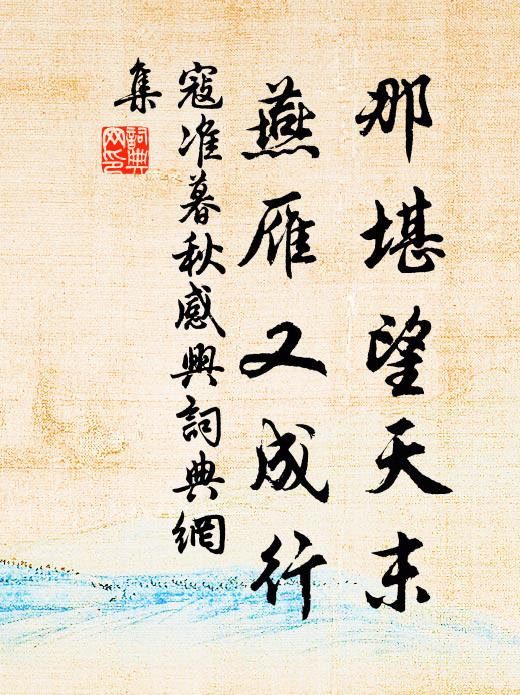 那堪望天末
燕雁又成行
寇准暮秋感興詞典網
集
詞典
网印